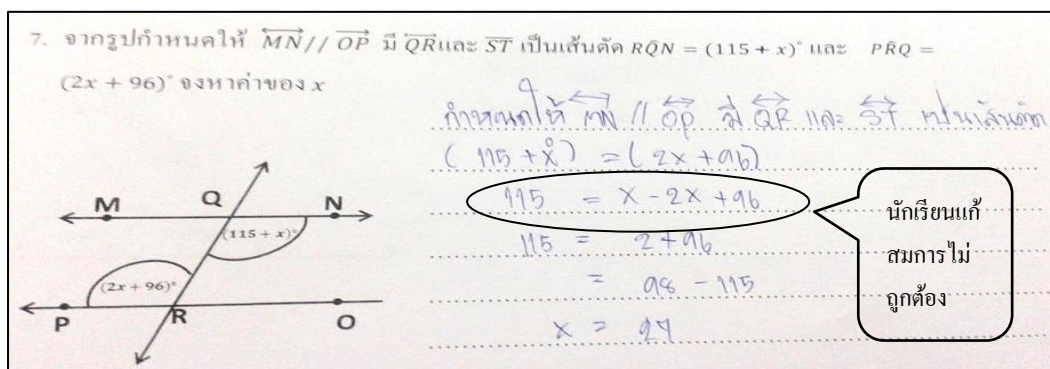 7. จากรูปกำหนดให้ MN // OP มี QR และ ST เป็นเส้นตัด RQ̂N = (115 + x)° และ PR̂Q =
(2x + 96)° จงหาค่าของ x
กำหนดให้ MN // OP มี QR และ ST เป็นเส้นตัด
(115 + x°) = (2x + 96)
115 = x - 2x + 96
115 = 2 + 96
= 98 - 115
x = 27
นักเรียนแก้
สมการไม่
ถูกต้อง
M Q N
(115 + x)°
(2x + 96)°
P R O